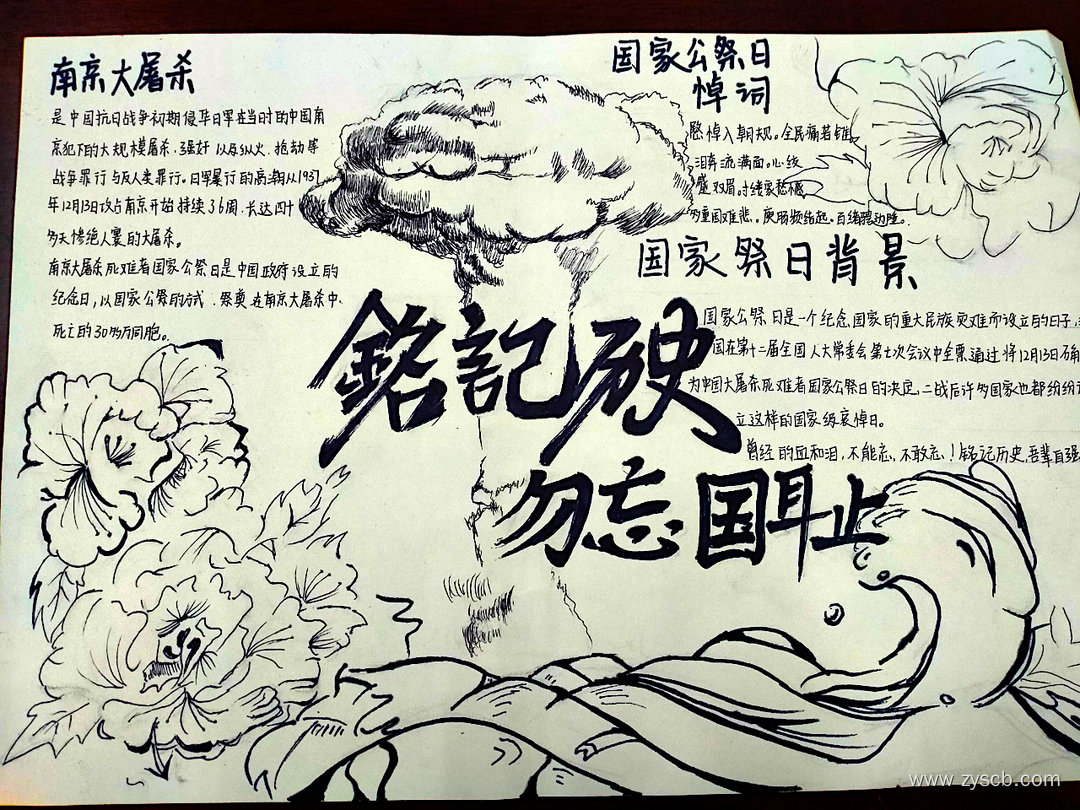 南京大屠杀
是中国抗日战争初期侵华日军在当时的中国南
京犯下的大规模屠杀、强奸以及纵火、抢劫等
战争罪行与反人类罪行。日军暴行的高潮从1937
年12月13日攻占南京开始持续36周,长达四十
多天惨绝人寰的大屠杀。
南京大屠杀死难者国家公祭日是中国政府设立的
纪念日,以国家公祭的方式,祭奠在南京大屠杀中
死亡的30多万同胞。
国家公祭日
悼词
悼入朝规。全民痛若锥
泪奔流满面。心线
盛双眉。
为重国难悲。庚肠频结起。百绪
国家祭日背景
国家公祭日是一个纪念国家的重大民族灾难而设立的日子,
国在第十二届全国人大常委会第七次会议中全票通过将12月13日确
为中国大屠杀死难者国家公祭日的决定,二战后许多国家也都纷纷
立这样的国家级哀悼日。
曾经的血和泪,不能忘,不敢忘,!铭记历史,吾辈自强
銘記歷史
勿忘国耻
www.zyscb.com